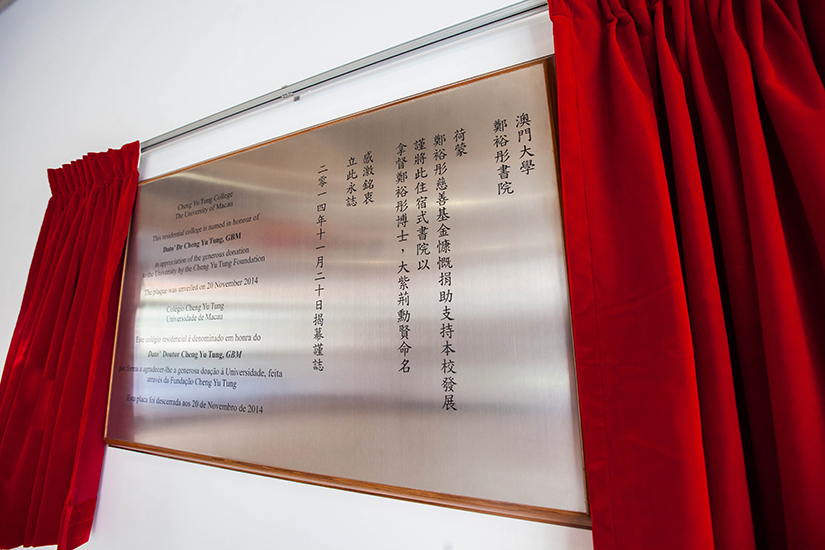 澳門大學
鄭裕彤書院
荷蒙
鄭裕彤慈善基金慷慨捐助支持本校發展
謹將此住宿式書院以
拿督鄭裕彤博士，大紫荊勳賢命名
感激銘衷
立此永誌
二零一四年十一月二十日揭幕謹誌
Cheng Yu Tung College
The University of Macau
This residential college is named in honour of
Dato' Dr Cheng Yu Tung, GBM
in appreciation of the generous donation
to the University by the Cheng Yu Tung Foundation
The plaque was unveiled on 20 November 2014
Colégio Cheng Yu Tung
Universidade de Macau
Este colégio residencial é denominado em honra do
Dato' Doutor Cheng Yu Tung, GBM
por forma a agradecer-lhe a generosa doação à Universidade, feita
através da Fundação Cheng Yu Tung
Esta placa foi descerrada aos 20 de Novembro de 2014